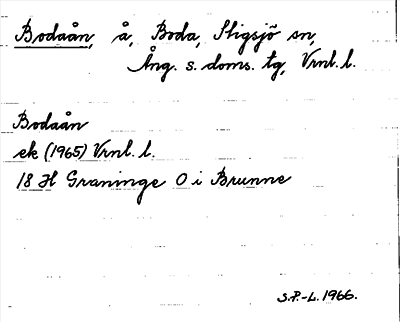 Bodaån, å, Boda, Stigsjö sn,
Ång. s. doms. tg, Vrnl. l.
Bodaån
ek (1965) Vrnl. l.
18 H Graninge O i Brunne
S.P.-L. 1966.